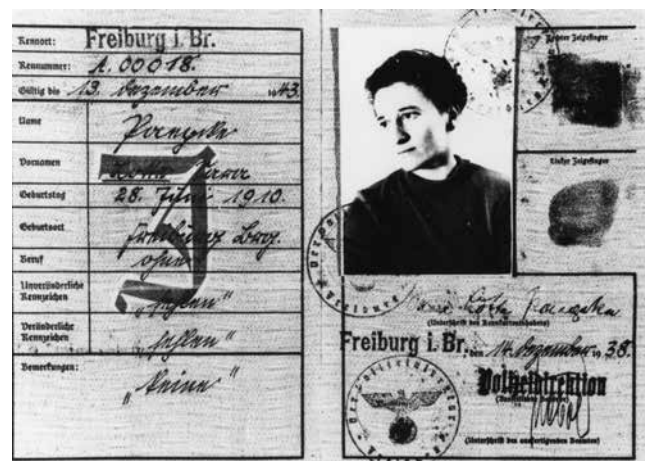 Kennort: Freiburg i. Br.
Kennnummer: A. 00018.
Gültig bis 13. Dezember 1943.
Name
Vornamen Lotte
Geburtstag 28. Juni 1910.
Geburtsort Freiburg Brsg.
Beruf ohne
Unveränderliche Kennzeichen „fehlen“
Veränderliche Kennzeichen „fehlen“
Bemerkungen: „keine“
J
Rechter Zeigefinger
Linker Zeigefinger
Lotte
(Unterschrift des Kennkarteninhabers)
Freiburg i. Br., den 14. Dezember 1938.
Polizeidirektion
(Ausstellende Behörde)
(Unterschrift des ausfertigenden Beamten)